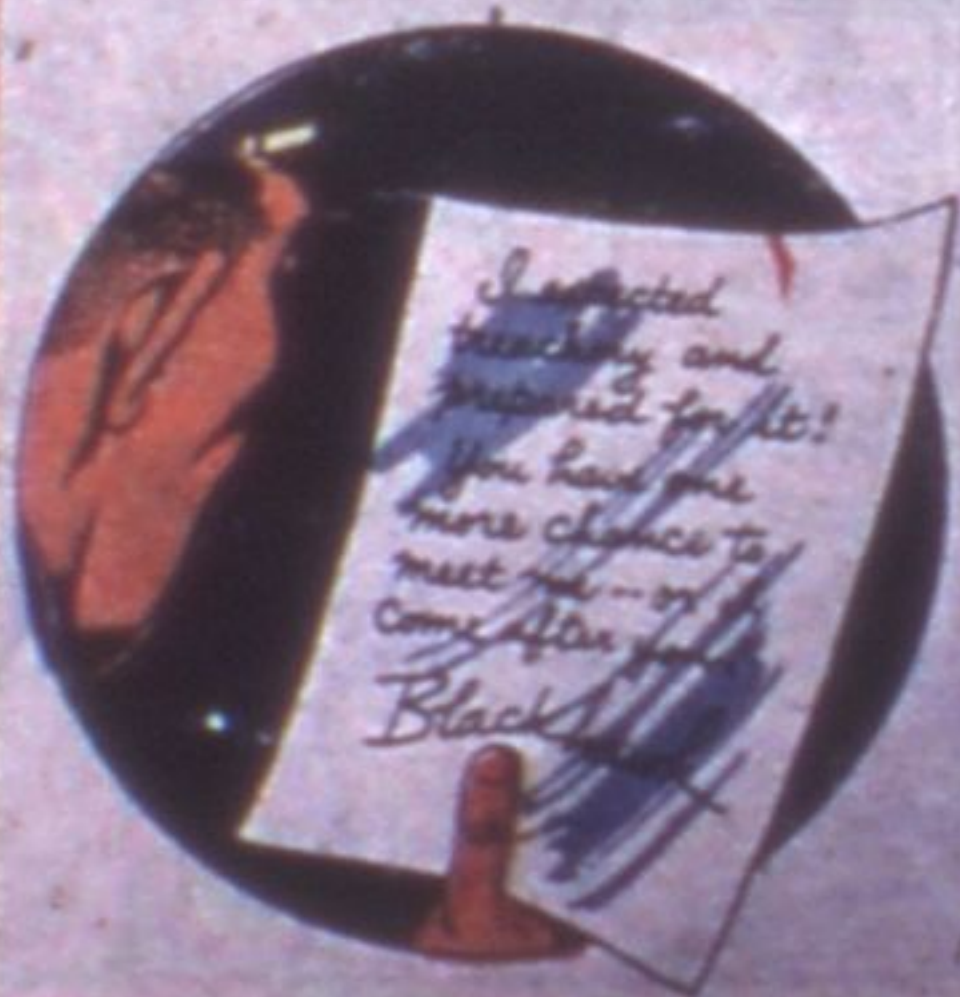 I expected
treachery and
prepared for it!
You have one
more chance to
meet me -- or I
come after you
Black